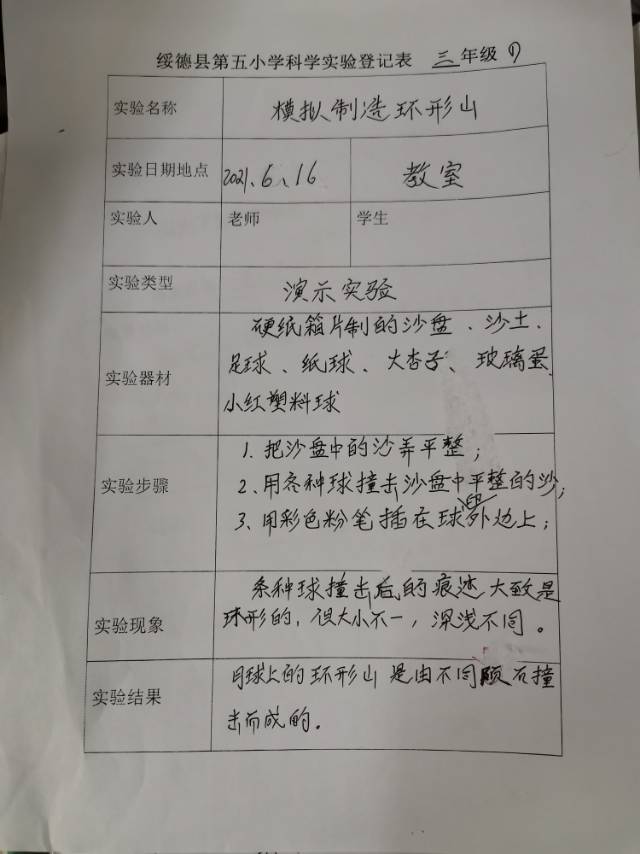 绥德县第五小学科学实验登记表 三年级(1)
实验名称 模拟制造环形山
实验日期地点 2021.6、16 教室
实验人 老师 学生
实验类型 演示实验
实验器材
硬纸箱片制的沙盘、沙土、
足球、纸球、大杏子、玻璃蛋
小红塑料球
实验步骤
1、把沙盘中的沙弄平整；
2、用各种球撞击沙盘中平整的沙；
3、用彩色粉笔插在球印外边上；
实验现象
各种球撞击后的痕迹大致是
环形的，但大小不一，深浅不同。
实验结果
月球上的环形山是由不同陨石撞
击而成的。